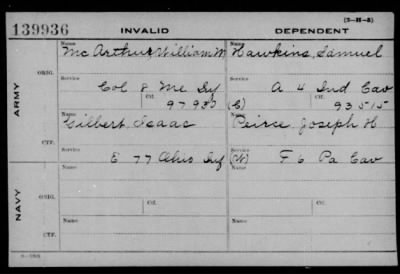 (3-H-5)
139936 INVALID DEPENDENT
Name Name
Mc Arthur, William M Hawkins, Samuel
ARMY ORIG. Service Service
Col 8 Me Inf A 4 Ind Cav
Ctf. 97930 (C) Ctf. 93515
Name Name
Gilbert, Isaac Peirce Joseph H
CTF. Service Service
E 77 Ohio Inf (W) F 6 Pa Cav
Name Name
NAVY ORIG. Service Service
Ctf. Ctf.
Name Name
CTF. Service Service